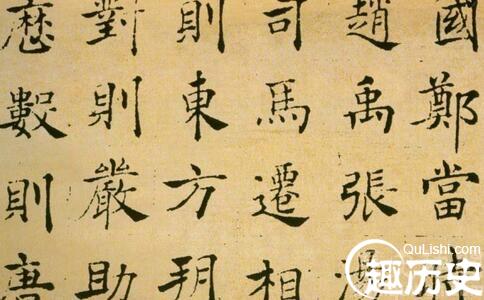 國鄭當
趙禹張
司馬遷相
則東方朔
對則嚴助
曆數則唐
QuLishi.com
趣历史